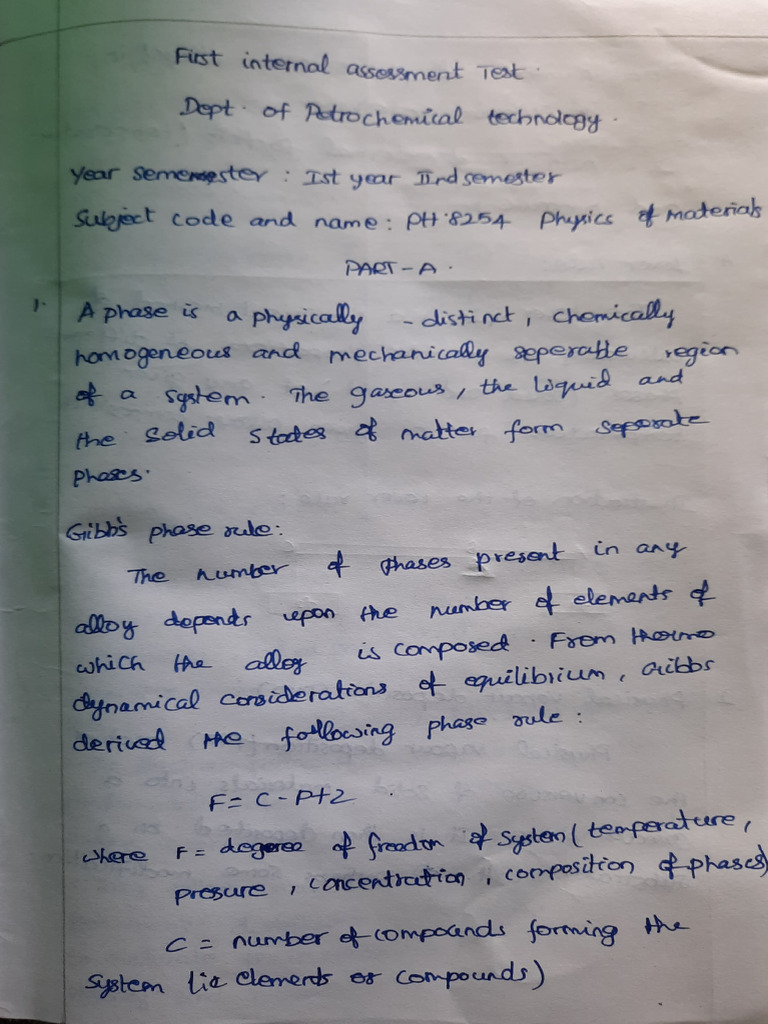 First internal assessment Test.
Dept. of Petrochemical technology.
Year sememester : Ist year IInd semester
Subject code and name: PH 8254 Physics of materials
PART-A.
1. A phase is a physically - distinct, chemically
homogeneous and mechanically seperable region
of a system. The gaseous, the liquid and
the solid states of matter form seperate
phases.
Gibb's phase rule:
The number of phases present in any
alloy depends upon the number of elements of
which the alloy is composed. From thermo
dynamical considerations of equilibrium, Gibbs
derived the following phase rule:
F = C - P + 2
where F = degree of freedom of system (temperature,
presure, concentration, composition of phases)
C = number of compounds forming the
system (ie elements or compounds)